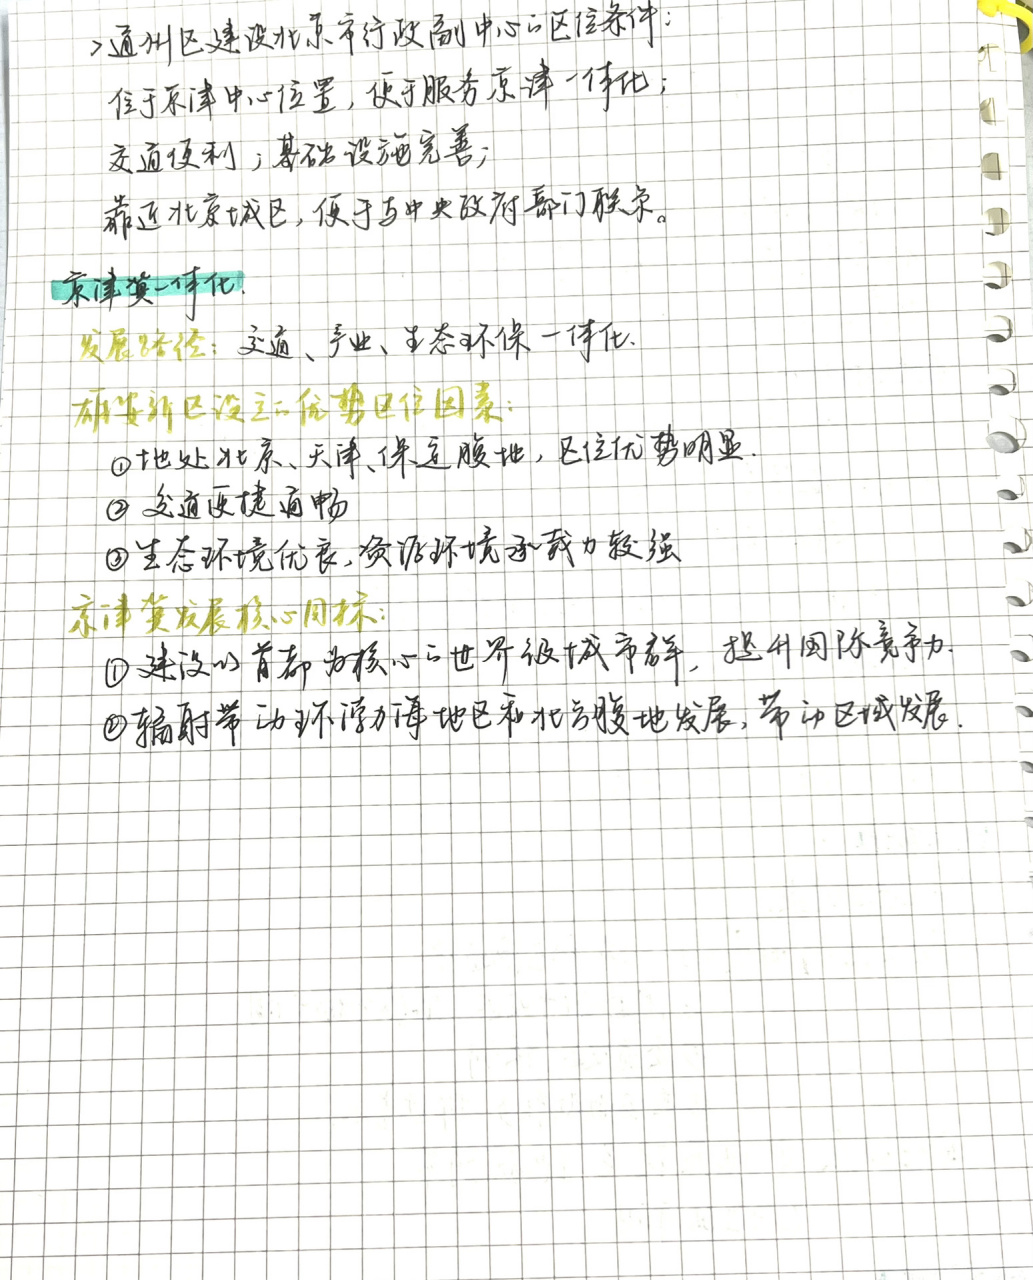 >通州区建设北京市行政副中心的区位条件:
位于京津中心位置,便于服务京津一体化;
交通便利;基础设施完善;
靠近北京城区,便于与中央政府部门联系。
京津冀一体化.
发展路径: 交通、产业、生态环保一体化.
雄安新区设立的优势区位因素:
①地处北京、天津、保定腹地,区位优势明显.
② 交通便捷通畅
③生态环境优良,资源环境承载力较强
京津冀发展核心目标:
① 建设以首都为核心的世界级城市群,提升国际竞争力.
②辐射带动环渤海地区和北方腹地发展,带动区域发展.